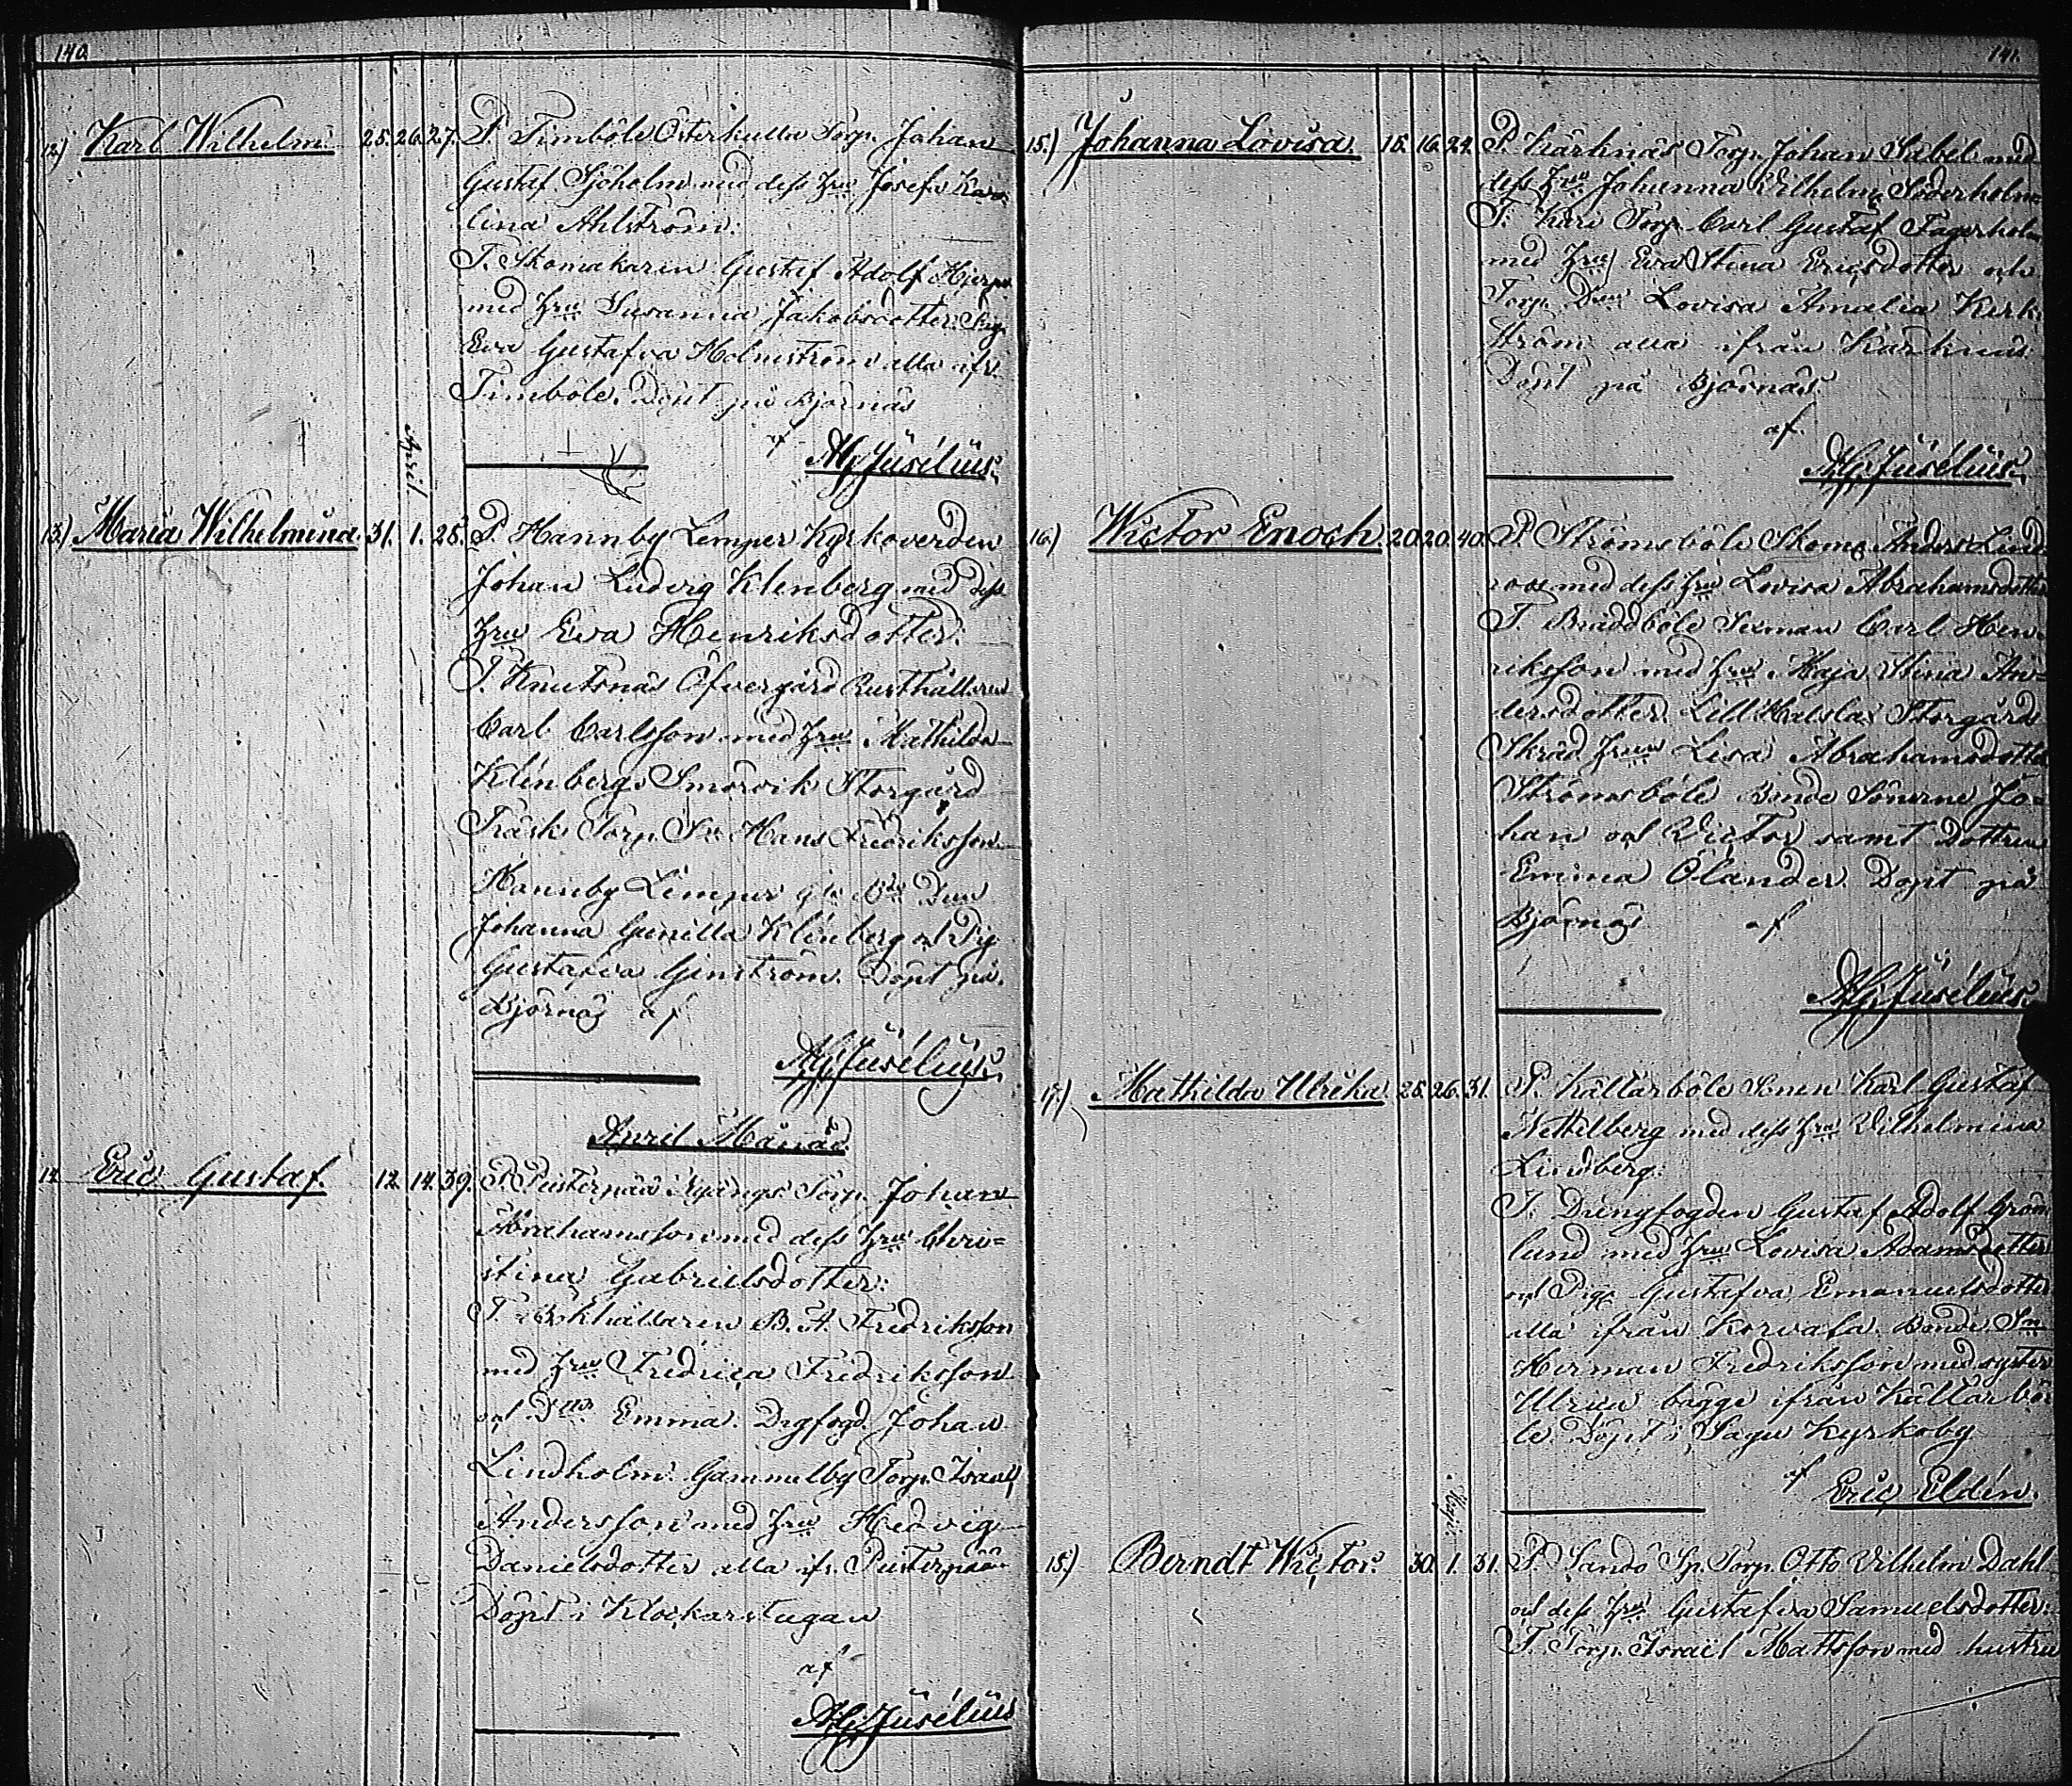 140
12.) Karl Wilhelm. 25. 26. 27. P. Timböle Österkulla Torp. Johan
Gustaf Sjöholm med dess hru Josefa Karo
lina Ahlström:
T. Skomakaren Gustaf Adolf Hjerpe
med hru Susanna Jakobsdotter. Pig.
Eva Gustafva Holmström alla ifr.
Timböle. Döpt på Björnäs
af
Juselius.
April
13.) Maria Wilhelmina. 31. 1. 28. P. Hannby Lemper Kyrkoverden
Johan Ludvig Klenberg med dess
hru Eva Henriksdotter:
T. Knutsnäs Öfvergård Rusthållaren
Carl Carlsson med hru Mathilda
Klenberg. Smörvik Storgård
Träsk Torp. Sn Hans Fredriksson
Hannby Lemper
Johanna Gunilla Klenberg och Pig.
Gustafva Ginström. Döpt på
Björnäs af
Juselius.
April Månad
14. Eric Gustaf. 12. 14. 39. P. Pusternäs Torp. Johan
Abrahamsson med dess hru Chri=
stina Gabrielsdotter:
T. Bokhållaren B. A. Fredriksson
med hru Fredrica Fredriksson
och Emma. Drgfogd. Johan
Lindholm. Gammelby Torp. Israel
Andersson med hru Hedvig
Danielsdotter alla ifr. Pusternäs
Döpt i Klockarstugan
af
Juselius
141.
15.) Johanna Lovisa. 15. 16. 24. P. Kärknäs Torp. Johan Sabel med
dess hru Johanna Vilhelmina Söderholm
T. Torp. Carl Gustaf Fagerholm
med hru Eva Stina Ericsdotter och
Torp. Lovisa Amalia Kerk=
ström alla ifrån Kärknäs.
Döpt på Björnäs.
af.
Juselius.
16.) Wictor Enoch. 20. 20. 40. P. Strömsböle Skoma. Anders Lind
roos med dess hru Lovisa Abrahamsdotter
T. Bräddböle Sexman Carl Hen=
riksson med hru Maja Stina An=
dersdotter. Lill Storgård
Skräd. hrun Lisa Abrahamsdotter
Strömsböle Bonde Sönerne Jo=
han och Victor samt Dottren
Emma Ölander. Döpt på
Björnäs af
Juselius.
17.) Mathilda Ulrika. 25. 26. 31. P. Källarböle Karl Gustaf
Nettelberg med dess hru Vilhelmina
Lindberg:
T. Drengfogden Gustaf Adolf Grön
lund med hru Lovisa Adamsdotter
och Pig. Gustafva Emanuelsdotter
alla ifrån Korvala. Bonde Sn
Herman Fredriksson med syster
Ulrica bägge ifrån Källarbö
le. Döpt i Sagu Kyrkoby
af
Eric Eldén.
Maji
15.) Berndt Wictor. 30. 1. 31. P. Sandö Sp. Torp. Otto Vilhelm Dahl
och dess hru Gustafva Samuelsdotter:
T. Torp. Israel Mattsson med hustru